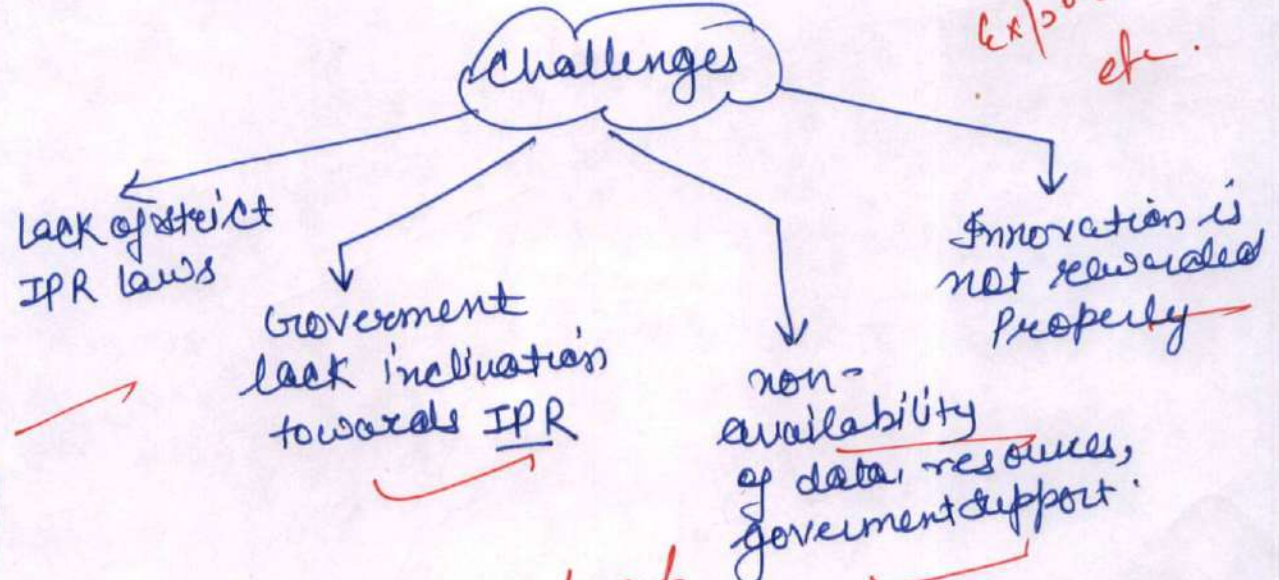 Challenges
etc.
Lack of strict
IPR laws
Goverment
lack inclination
towards IPR
non-
availability
of data, resources,
goverment support.
Innovation is
not rewarded
Properly